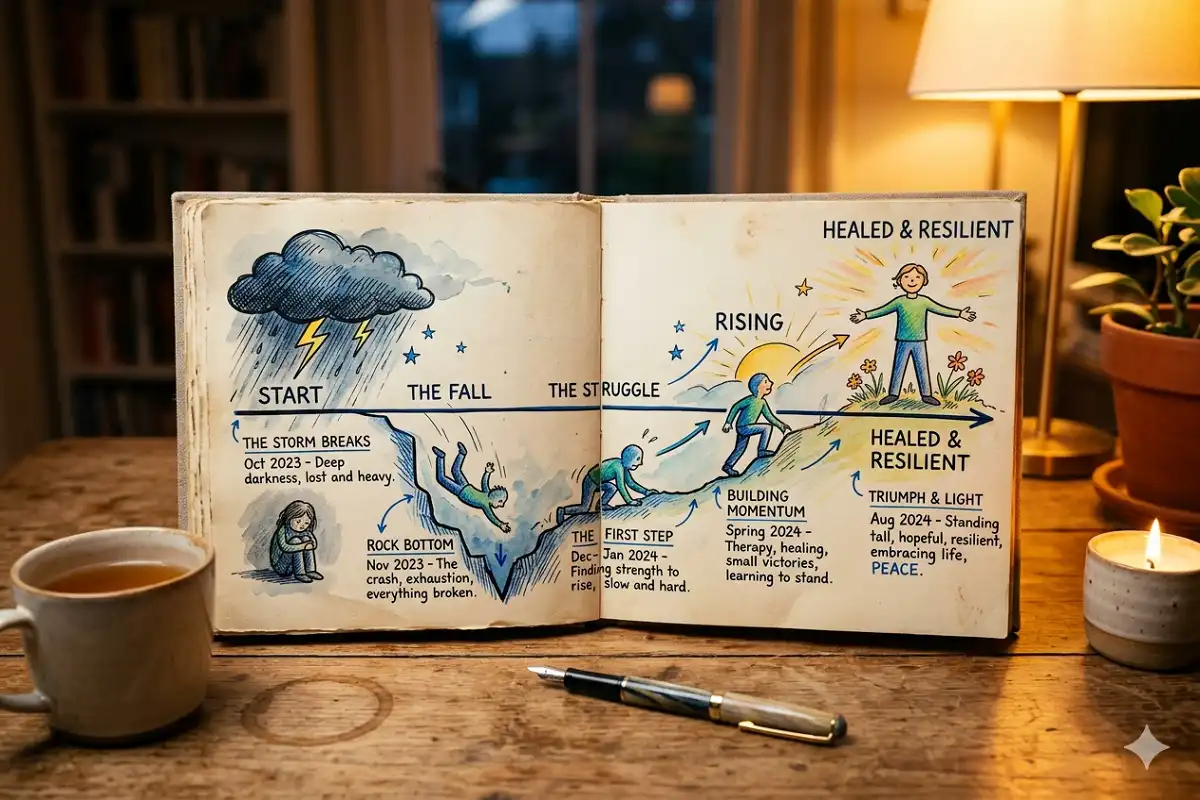 HEALED & RESILIENT
RISING
START
THE FALL
THE STRUGGLE
THE STORM BREAKS
Oct 2023 - Deep
darkness, lost and heavy.
ROCK BOTTOM
Nov 2023 - The
crash, exhaustion,
everything broken.
THE FIRST STEP
Dec-Jan 2024 -
Finding strength to
rise, slow and hard.
BUILDING
MOMENTUM
Spring 2024 -
Therapy, healing,
small victories,
learning to stand.
HEALED &
RESILIENT
TRIUMPH & LIGHT
Aug 2024 - Standing
tall, hopeful, resilient,
embracing life,
PEACE.